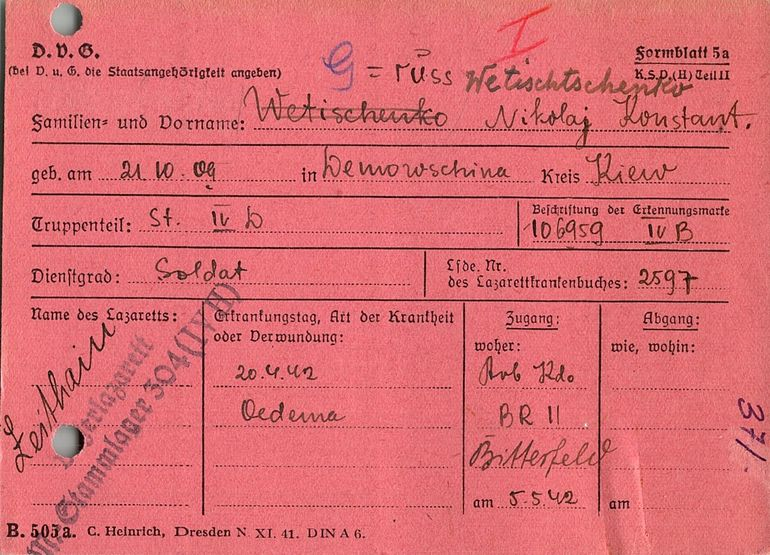 I
D. V. G.
(bei D. u. G. die Staatsangehörigkeit angeben)
G = russ
Formblatt 5a
K.S.D.(H) Teil II
Wetischtschenko
Familien- und Vorname: Wetischenko Nikolaj Konstant.
geb. am 21 10 09 in Demowschina Kreis Kiew
Truppenteil: St. IV D
Beschriftung der Erkennungsmarke
106959 IV B
Dienstgrad: Soldat
Lfde. Nr.
des Lazarettkrankenbuches: 2597
Name des Lazaretts:
Zeithain
Lagerlazarett
Stammlager 304 (IV H)
Erkrankungstag, Art der Krankheit
oder Verwundung:
20.4.42
Oedema
Zugang:
woher:
Arb Kdo
BR II
Bitterfeld
am 5 5 42
Abgang:
wie, wohin:
am
37/.
B. 505a. C. Heinrich, Dresden N. XI. 41. DIN A 6.